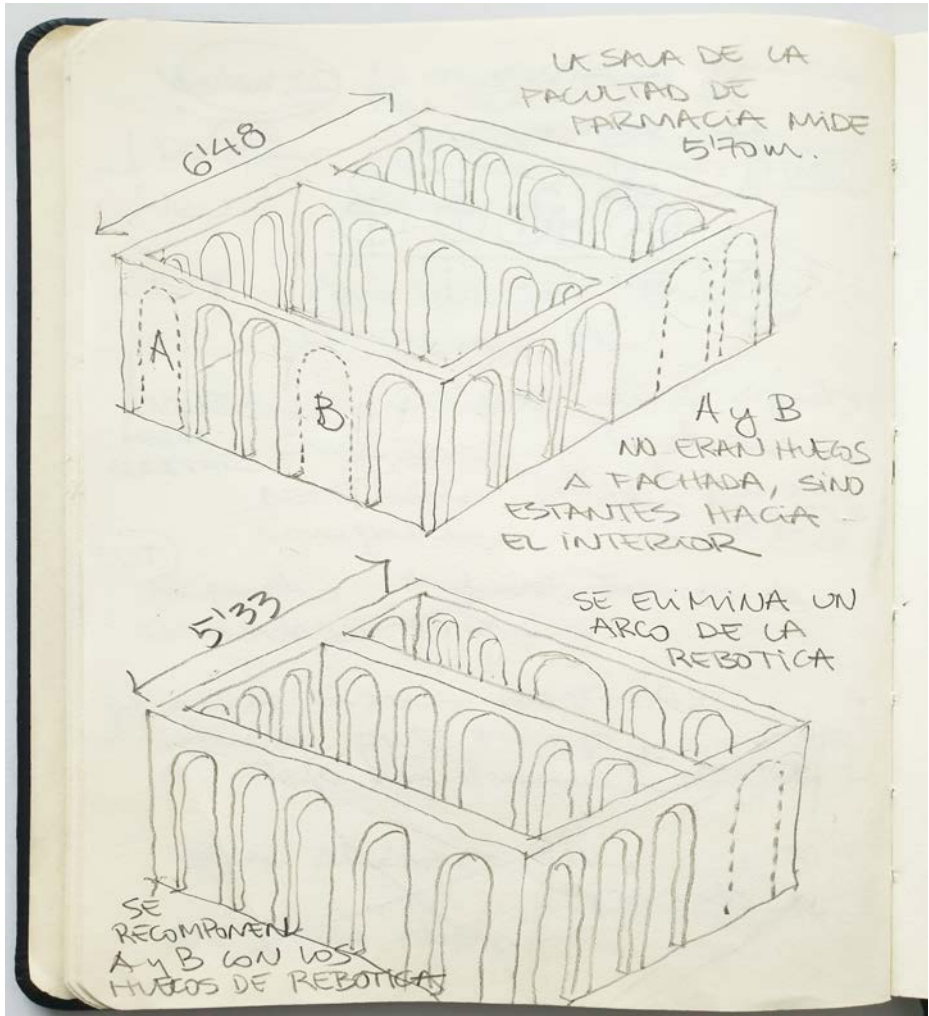 LA SALA DE LA
FACULTAD DE
FARMACIA MIDE
5'70 m.
6'48
A
B
A y B
NO ERAN HUECOS
A FACHADA, SINO
ESTANTES HACIA
EL INTERIOR
5'33
SE ELIMINA UN
ARCO DE LA
REBOTICA
SE
RECOMPONEN
A y B CON LOS
HUECOS DE REBOTICA